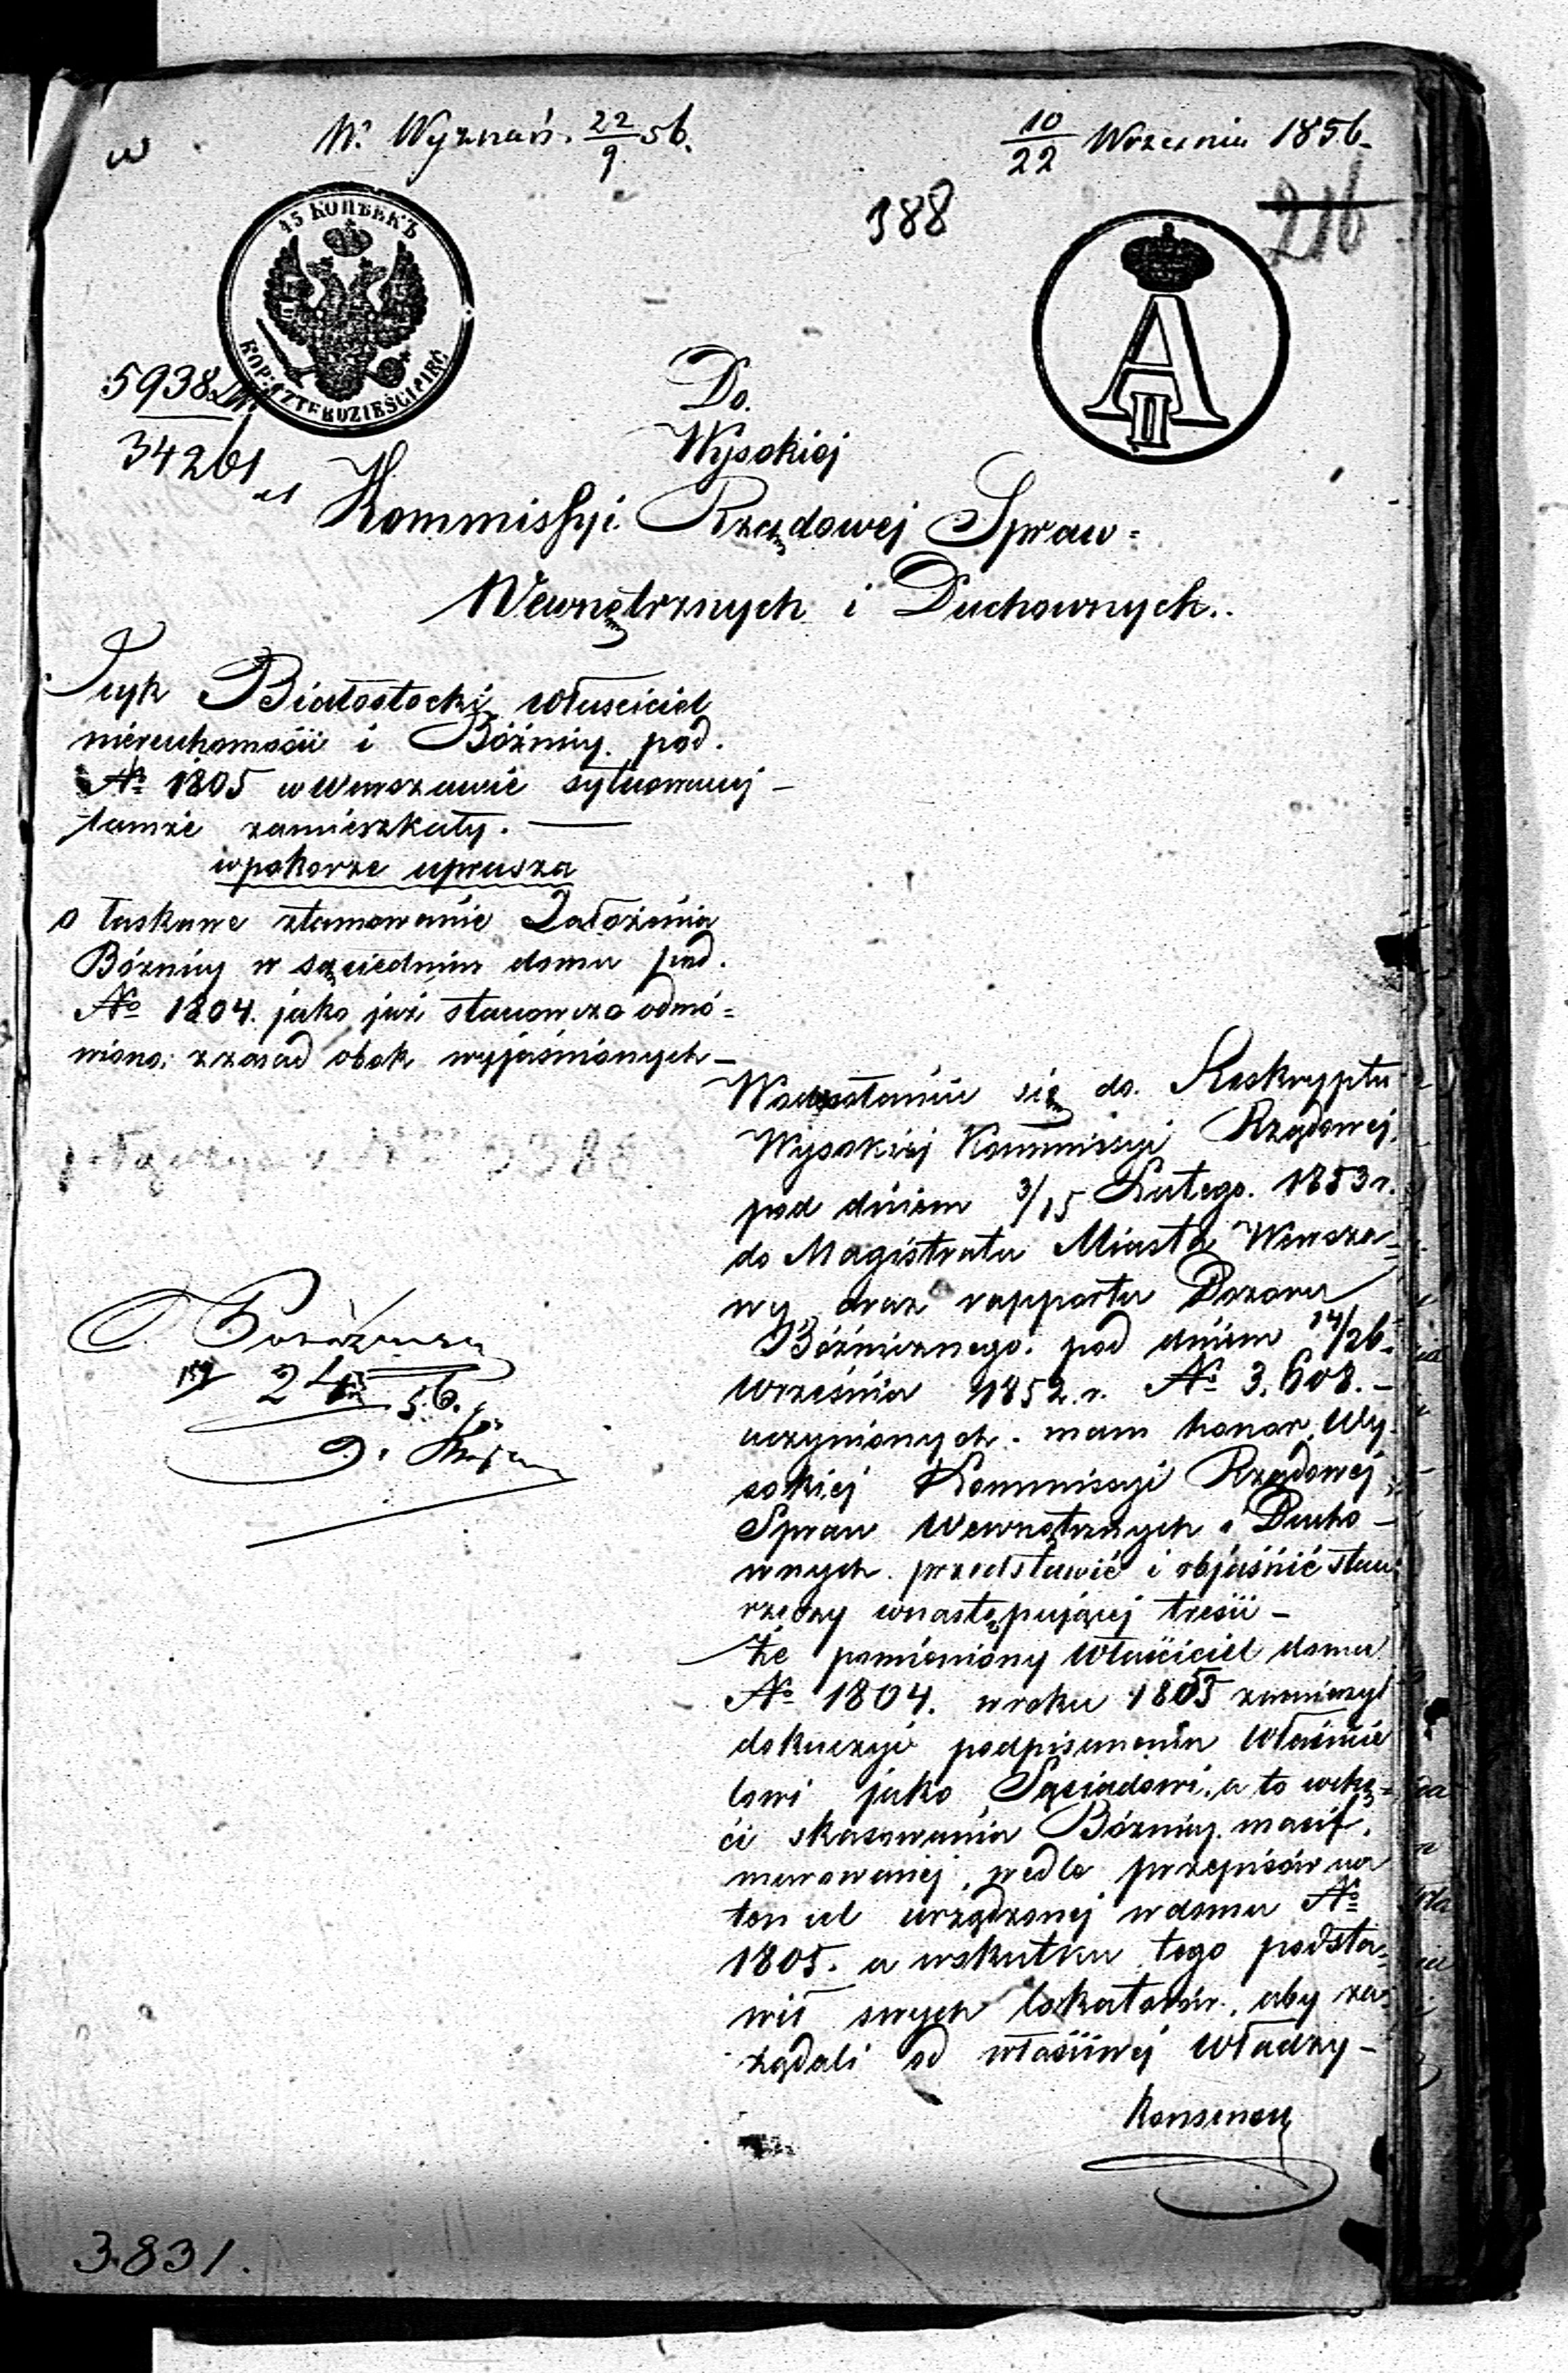 W. Wyznań. 22/9 56.
10/22 Września 1856.
388
216
45 КОПѢЕКЪ
KOP: CZTERDZIEŚCI PIĘĆ
A II
5938
34261
Do.
Wysokiej
Kommissyi Rządowej Spraw=
Wewnętrznych i Duchownych..
Icyk Białostocki właściciel
nieruchomości i Bóźnicy pod.
No 1805 w Warszawie sytuowanej –
tamże zamieszkały. —
w pokorze uprasza
o łaskawe ztamowanie Założenia
Bóznicy w sąsiednim domu pod.
No 1804. jako już stanowczo odmó=
wiono: z zasad obok wyjaśnionych –
W odwołaniu się do. Reskryptu
Wysokiej Kommissyi Rządowej
pod dniem 3/15 Lutego. 1853 r.
do Magistratu Miasta Warsza-
wy oraz rapportu Dozoru
Bóżnicznego. pod dniem 14/26.
Września 1852. r. No 3.608. –
uczynionych. mam honor Wy
sokiej Kommissyi Rządowej
Spraw Wewnętrznych i Ducho –
wnych. przedstawić i objaśnić stan
rzeczy w następującej treści –
Że pomieniony Właściciel domu
No 1804. w roku 1855 zamierzył
dokuczyć podpisanemu Właścicie
lowi jako Sąsiadowi, a to w chę=
ci skasowania Bóznicy massif.
murowanej, wedle przepisów na
ten cel urządzonej w domu No
1805. a w skutku tego podsta=
wił swych lokatorów, aby za=
żądali od właściwej Władzy –
Konsensu
24 56.
3.831.